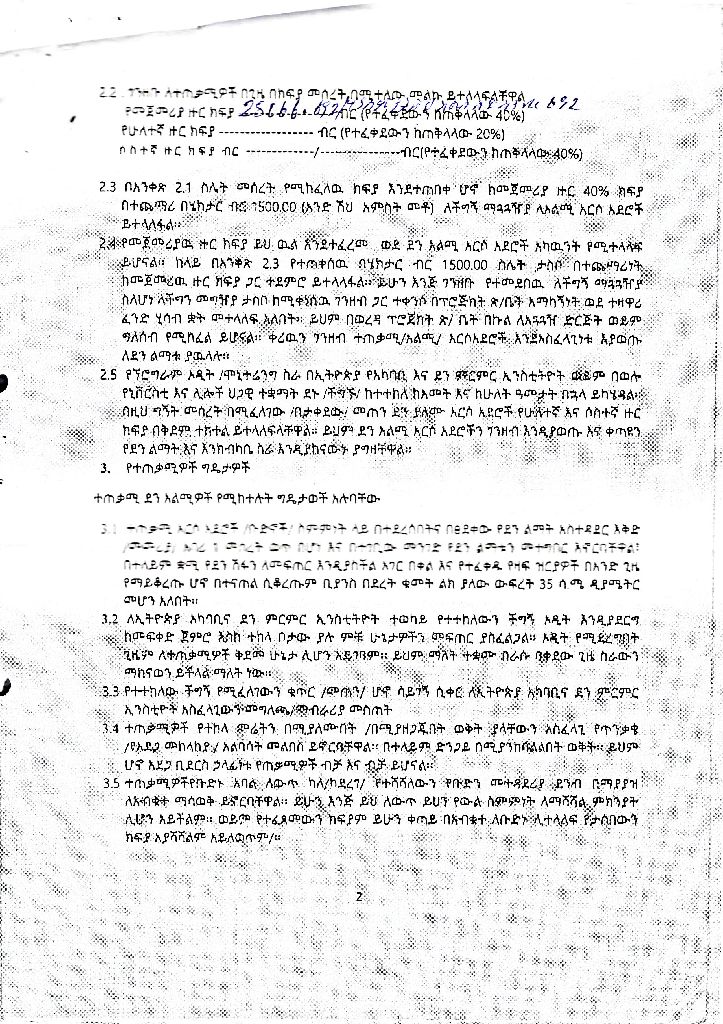 2.2 . ገንዘቡ ለተጠቃሚዎች በጊዜ በክፍያ መሰረት በሚተለው መልኩ ይተላለፍላቸዋል
የመጀመሪያ ዙር ክፍያ ብር (የተፈቀደውን ከጠቅላላው 40%)
የሁለተኛ ዙር ክፍያ ------------------ ብር (የተፈቀደውን ከጠቅላላው 20%)
ሶስተኛ ዙር ክፍያ ብር --------------/----------------ብር(የተፈቀደውን ከጠቅላላው 40%)
2.3 በአንቀጽ 2.1 ስሌት መሰረት የሚከፈለዉ ክፍያ እንደተጠበቀ ሆኖ ከመጀመሪያ ዙር 40% ክፍያ
በተጨማሪ በሄክታር ብር 1500.00 (አንድ ሽህ አምስት መቶ) ለችግኝ ማጓጓዣያ ለአልሚ አርሶ አደሮች
ይተላለፋል።
2.4 የመጀመሪያዉ ዙር ክፍያ ይህ ዉል እንደተፈረመ ወደ ደን አልሚ አርሶ አደሮች አካዉንት የሚተላለፍ
ይሆናል። ከላይ በአንቀጽ 2.3 የተጠቀሰዉ በሄክታር ብር 1500.00 ስሌት ታስቦ በተጨማሪነት
ከመጀመሪዉ ዙር ክፍያ ጋር ተደምሮ ይተላለፋል። ይሁን እንጅ ገንዘቡ የተመደበዉ ለችግኝ ማጓጓዣያ
ስለሆነ ለችግኝ መግዣያ ታስቦ ከሚቀነሰዉ ገንዘብ ጋር ተቀንሶ በፕሮጀክት ጽ/ቤት አማካኝነት ወደ ተዘዋሪ
ፈንድ ሂሳብ ቋት መተላለፍ አለበት። ይህም በወረዳ ፕሮጀክት ጽ/ ቤት በኩል ለአጓጓዥ ድርጅት ወይም
ግለሰብ የሚከፈል ይሆናል። ቀሪዉን ገንዘብ ተጠቃሚ/አልሚ/ አርሶአደሮች እንደአስፈላጊነቱ እያወጡ
ለደን ልማቱ ያዉላሉ።
2.5 የኘሮግራም ኦዲት /ሞኒተሬንግ ስራ በኢትዮጵያ የአካባቢ እና ደን ምርምር ኢንስቲትዮት ወይም በወሎ
የኒቨርስቲ እና ሌሎች ህጋዊ ተቋማት ደኑ /ችግኙ/ ከተተከለ ከአመት እና ከሁለት ዓመታት በኋላ ይካሄዳል፡
በዚህ ግኝት መሰረት በሚፈለገው /በታቀደው/ መጠን ደን ያለሙ አርሶ አደሮች የሁለተኛ እና ሶስተኛ ዙር
ክፍያ በቅደም ተከተል ይተላለፍላቸዋል። ይህም ደን አልሚ አርሶ አደሮችን ገንዘብ እንዲያወጡ እና ቀጣዩን
የደን ልማት እና እንክብካቤ ስራ እንዲያከናውኑ ያግዛቸዋል።
3. የተጠቃሚዎች ግዴታዎች
ተጠቃሚ ደን አልሚዎች የሚከተሉት ግዴታወች አሉባቸው
3.1 ተጠቃሚ አርሶ አደሮች /ቡድኖች/ ስምምነት ላይ በተደረሰበትና በፀደቀው የደን ልማት አስተዳደር እቅድ
መሰረት ወጥ በሆነ እና በተገቢው መንገድ የደን ልማቱን መተግበር ይኖርባቸዋል፡
በተለይም ቋሚ የደን ሽፋን ለመፍጠር እንዲያስችል አገር በቀል እና የተፈቀዱ የዛፍ ዝርያዎች በአንድ ጊዜ
የማይቆረጡ ሆኖ በተናጠል ሲቆረጡም ቢያንስ በደረት ቁመት ልክ ያለው ውፍረት 35 ሳ.ሜ ዲያሜትር
መሆን አለበት።
3.2 ለኢትዮጵያ አካባቢና ደን ምርምር ኢንስቲትዮት ተወካይ የተተከለውን ችግኝ ኦዲት እንዲያደርግ
ከመፍቀድ ጀምሮ እስከ ተከላ ቦታው ያሉ ምቹ ሁኔታዎችን መፍጠር ያስፈልጋል። ኦዲት የሚደረግበት
ጊዜም ለተጠቃሚዎች ቅደመ ሁኔታ ሊሆን አይገባም። ይህም ማለት ተቋሙ ብራሱ በቀደው ጊዜ ስራውን
ማከናወን ይችላል ማለት ነው።
3.3 የተተከለው ችግኝ የሚፈለገውን ቁጥር /መጠን/ ሆኖ ሳይገኝ ሲቀር ለኢትዮጵያ አካባቢና ደን ምርምር
ኢንስቲዮት አስፈላጊውን መግለጫ/ማብራሪያ መስጠት
3.4 ተጠቃሚዎች የተከላ ምሬትን በሚያለሙበት /በሚያዘጋጁበት ወቅት ያላቸውን አስፈላጊ የጥንቃቄ
/የአደጋ መከላከያ/ አልባሳት መልበስ ይኖርባቸዋል። በተለይም ድንጋይ በሚያንከባልልበት ወቅት። ይህም
ሆኖ አደጋ ቢደርስ ኃላፊነቱ የጠቃሚዎች ብቻ እና ብቻ ይሆናል።
3.5 ተጠቃሚዎችየቡድኑ አባል ለውጥ ካለ/ከደረገ/ የተሻሻለውን የቡድን መተዳደሪያ ደንብ በማያያዝ
ለአብቁተ ማሳወቅ ይኖርባቸዋል። ይሁን እንጅ ይህ ለውጥ ይህን የውል ስምምነት ለማሻሻል ምክንያት
ሊሆን አይችልም። ወይም የተፈጸመውን ክፍያም ይሁን ቀጣይ በአብቁተ ለቡድኑ ሊተላለፍ የታሰበውን
ክፍያ አያሻሽልም አይለወጥም/።
2